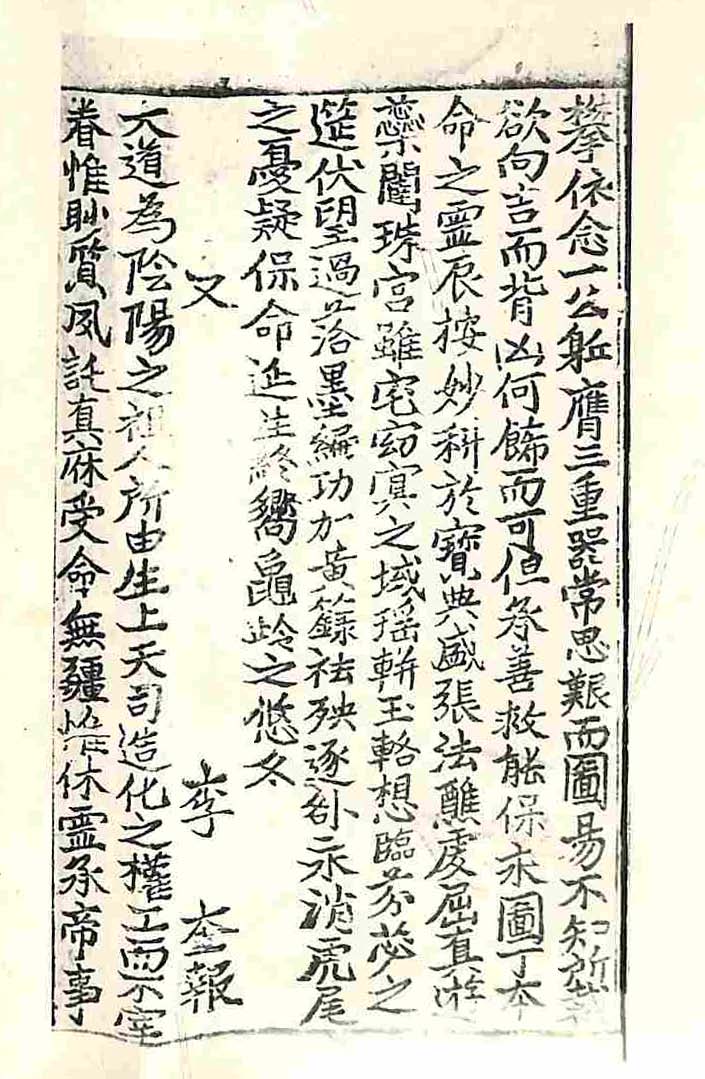 攀依念一公躬膺三重器常思艱而圖易不知所裁
欲向吉而背凶何餙而可但承善救能保永圖丁本
命之靈辰按妙科於寳典盛張法醮虔屈真遊
蘂闕珠宮雖宅窈㝠之域瑶軿玉輅想臨芬苾之
筵伏望過落墨編功加黃籙祛殃逐衍永消虎尾
之憂疑保命延生終嚮龜齡之悠久
又 李奎報
大道為陰陽之祖人所由生上天司造化之權工而不宰
眷惟眇質夙託真庥受命無疆惟休靈承帝事